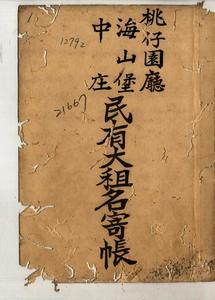 桃仔園廳
海山堡
中庄
民有大租名寄帳
12792
21667